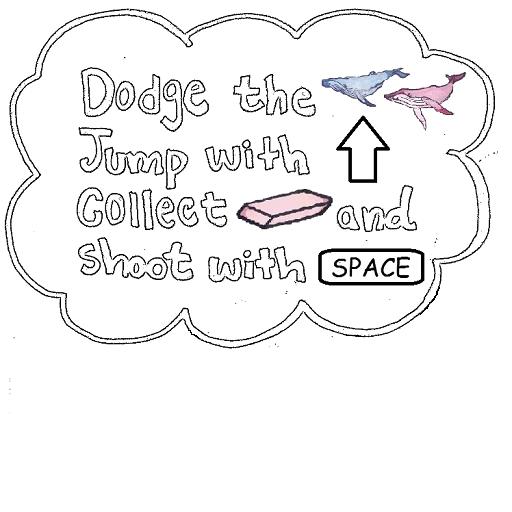 Dodge the
Jump with
Collect and
shoot with SPACE